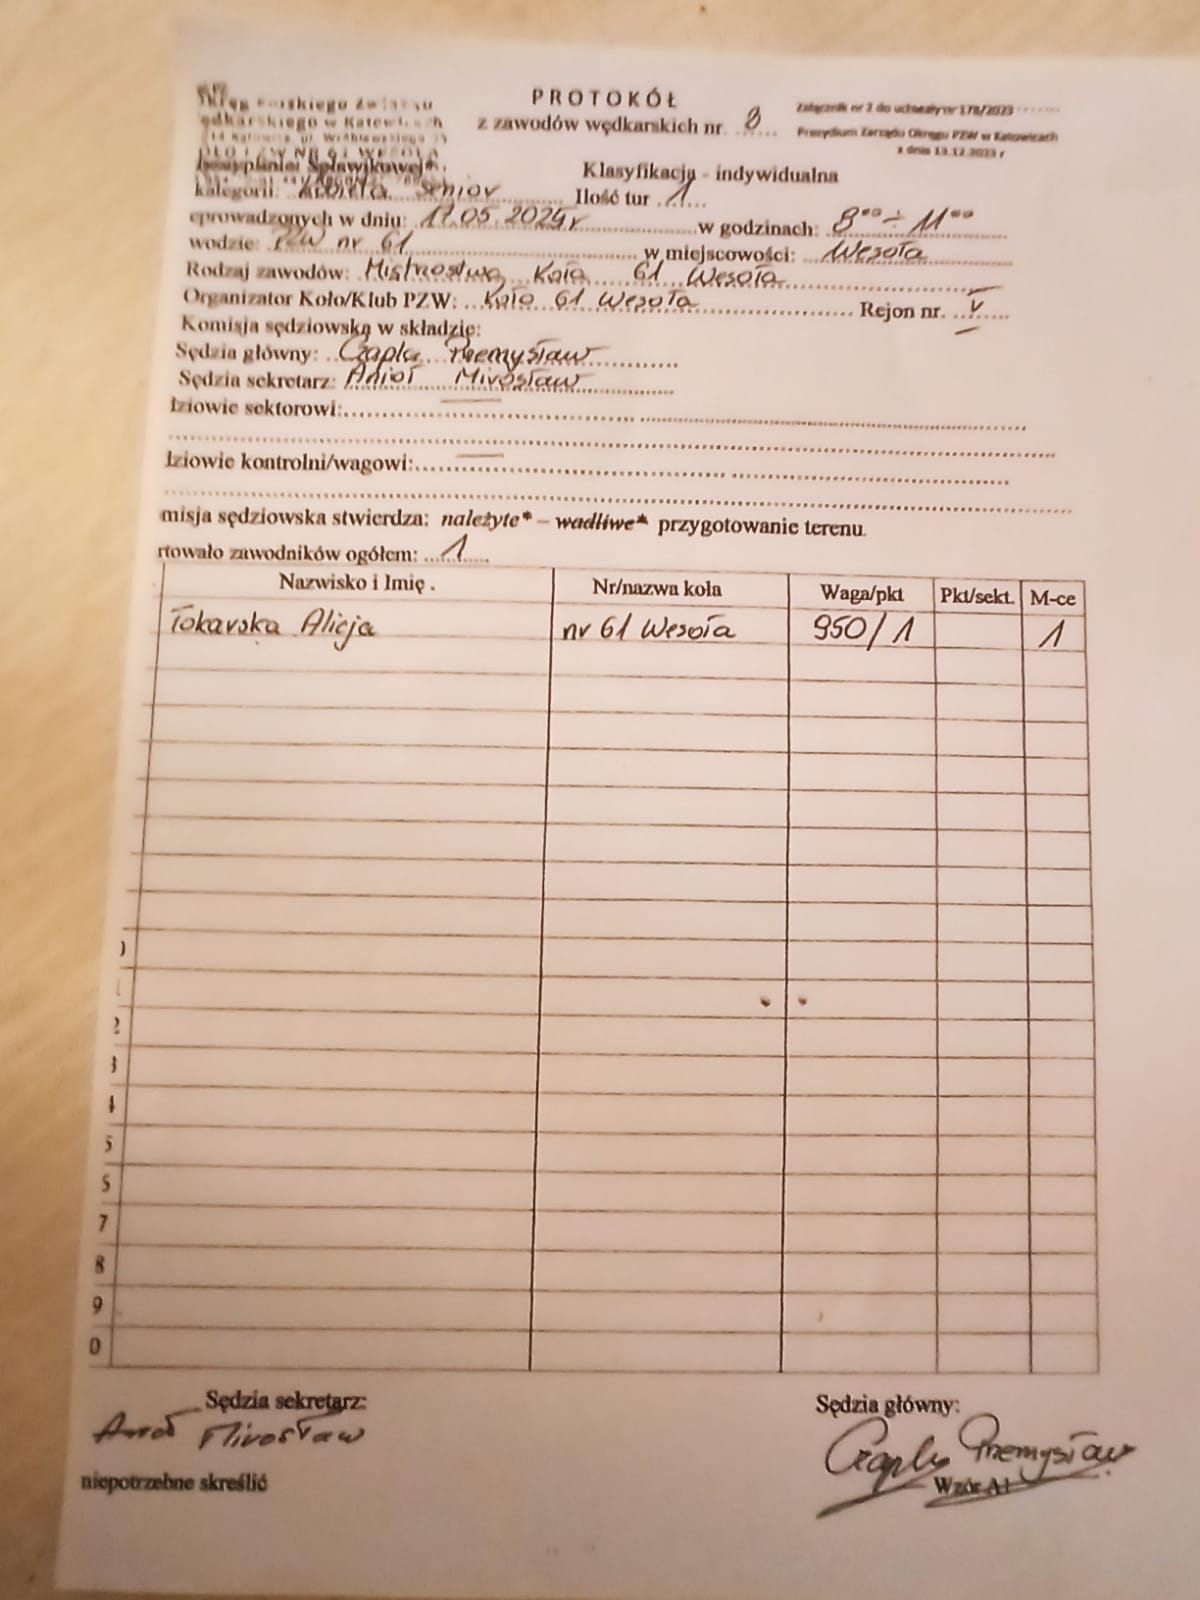 PROTOKÓŁ
z zawodów wędkarskich nr. 8
Załącznik nr 2 do uchwały nr 178/2023
Prezydium Zarządu Okręgu PZW w Katowicach
z dnia 13.12.2023 r
Klasyfikacja - indywidualna
kategorii: Kobieta Senior Ilość tur 1
eprowadzonych w dniu: 17.05.2024r w godzinach: 8°° ÷ 11°°
wodzie: PZW nr 61 w miejscowości: Wesoła
Rodzaj zawodów: Mistrostwa Koła 61 Wesoła
Organizator Koło/Klub PZW: Koło 61 Wesoła Rejon nr. V
Komisja sędziowska w składzie:
Sędzia główny: Czapla Przemysław
Sędzia sekretarz: Anioł Mirosław
dziowie sektorowi:
dziowie kontrolni/wagowi:
misja sędziowska stwierdza: należyte* – wadliwe* przygotowanie terenu.
rtowało zawodników ogółem: 1
Nazwisko i Imię . Nr/nazwa koła Waga/pkt Pkt/sekt. M-ce
Tokarska Alicja nr 61 Wesoła 950/1 1
2
3
4
5
7
8
9
0
Sędzia sekretarz: Sędzia główny:
Anioł Mirosław Czapla Przemysław
niepotrzebne skreślić Wzór A1